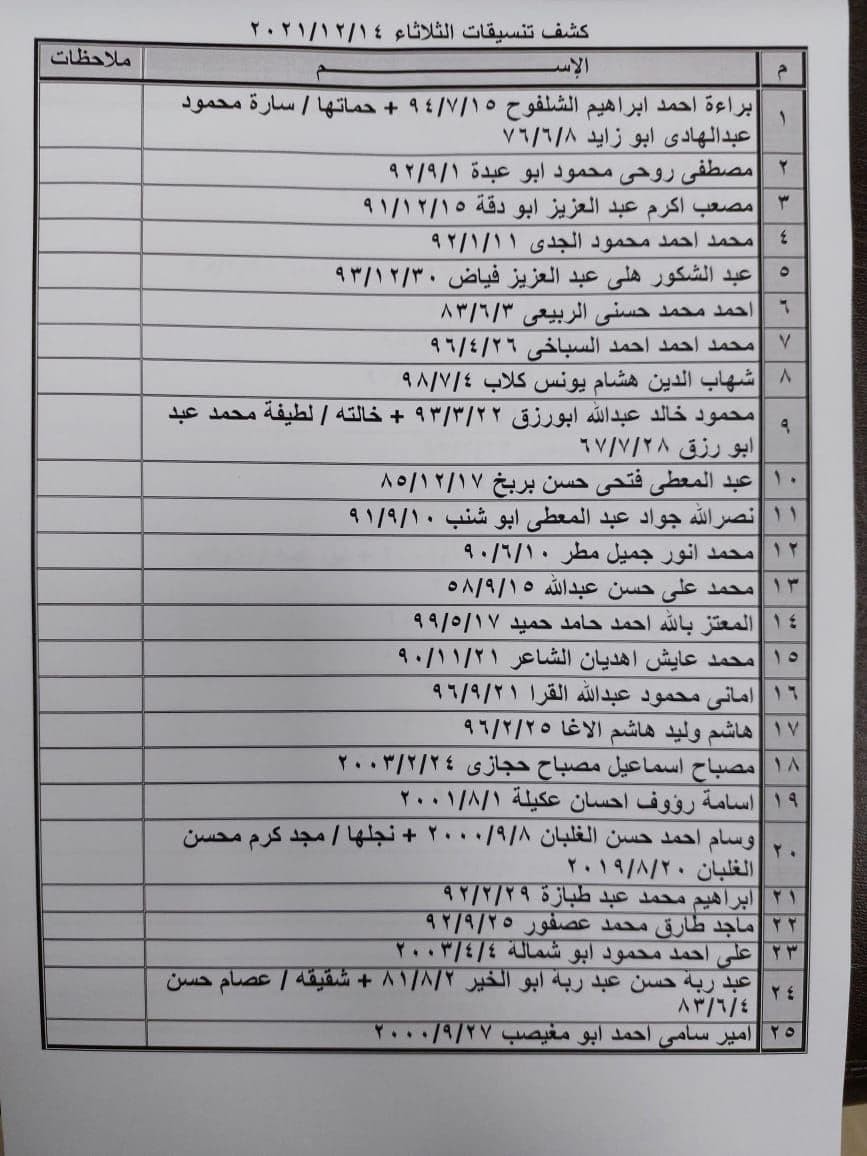 كشف تنسيقات الثلاثاء ٢٠٢١/١٢/١٤
م الإســـــــم ملاحظات
١ براءة احمد ابراهيم الشلفوح ٩٤/٧/١٥ + حماتها / سارة محمود
عبدالهادى ابو زايد ٧٦/٦/٨
٢ مصطفى روحى محمود ابو عبدة ٩٢/٩/١
٣ مصعب اكرم عبد العزيز ابو دقة ٩١/١٢/١٥
٤ محمد احمد محمود الجدى ٩٢/١/١١
٥ عبد الشكور هلى عبد العزيز فياض ٩٣/١٢/٣٠
٦ احمد محمد حسنى الربيعى ٨٣/٦/٣
٧ محمد احمد احمد السباخى ٩٦/٤/٢٦
٨ شهاب الدين هشام يونس كلاب ٩٨/٧/٤
٩ محمود خالد عبدالله ابورزق ٩٣/٣/٢٢ + خالته / لطيفة محمد عبد
ابو رزق ٦٧/٧/٢٨
١٠ عبد المعطى فتحى حسن بربخ ٨٥/١٢/١٧
١١ نصرالله جواد عبد المعطى ابو شنب ٩١/٩/١٠
١٢ محمد انور جميل مطر ٩٠/٦/١٠
١٣ محمد على حسن عبدالله ٥٨/٩/١٥
١٤ المعتز بالله احمد حامد حميد ٩٩/٥/١٧
١٥ محمد عايش اهديان الشاعر ٩٠/١١/٢١
١٦ امانى محمود عبدالله القرا ٩٦/٩/٢١
١٧ هاشم وليد هاشم الاغا ٩٦/٢/٢٥
١٨ مصباح اسماعيل مصباح حجازى ٢٠٠٣/٢/٢٤
١٩ اسامة رؤوف احسان عكيلة ٢٠٠١/٨/١
٢٠ وسام احمد حسن الغلبان ٢٠٠٠/٩/٨ + نجلها / مجد كرم محسن
الغلبان ٢٠١٩/٨/٢٠
٢١ ابراهيم محمد عبد طبازة ٩٢/٢/٢٩
٢٢ ماجد طارق محمد عصفور ٩٢/٩/٢٥
٢٣ على احمد محمود ابو شمالة ٢٠٠٣/٤/٤
٢٤ عبد ربة حسن عبد ربة ابو الخير ٨١/٨/٢ + شقيقه / عصام حسن
٨٣/٦/٤
٢٥ امير سامى احمد ابو مغيصب ٢٠٠٠/٩/٢٧